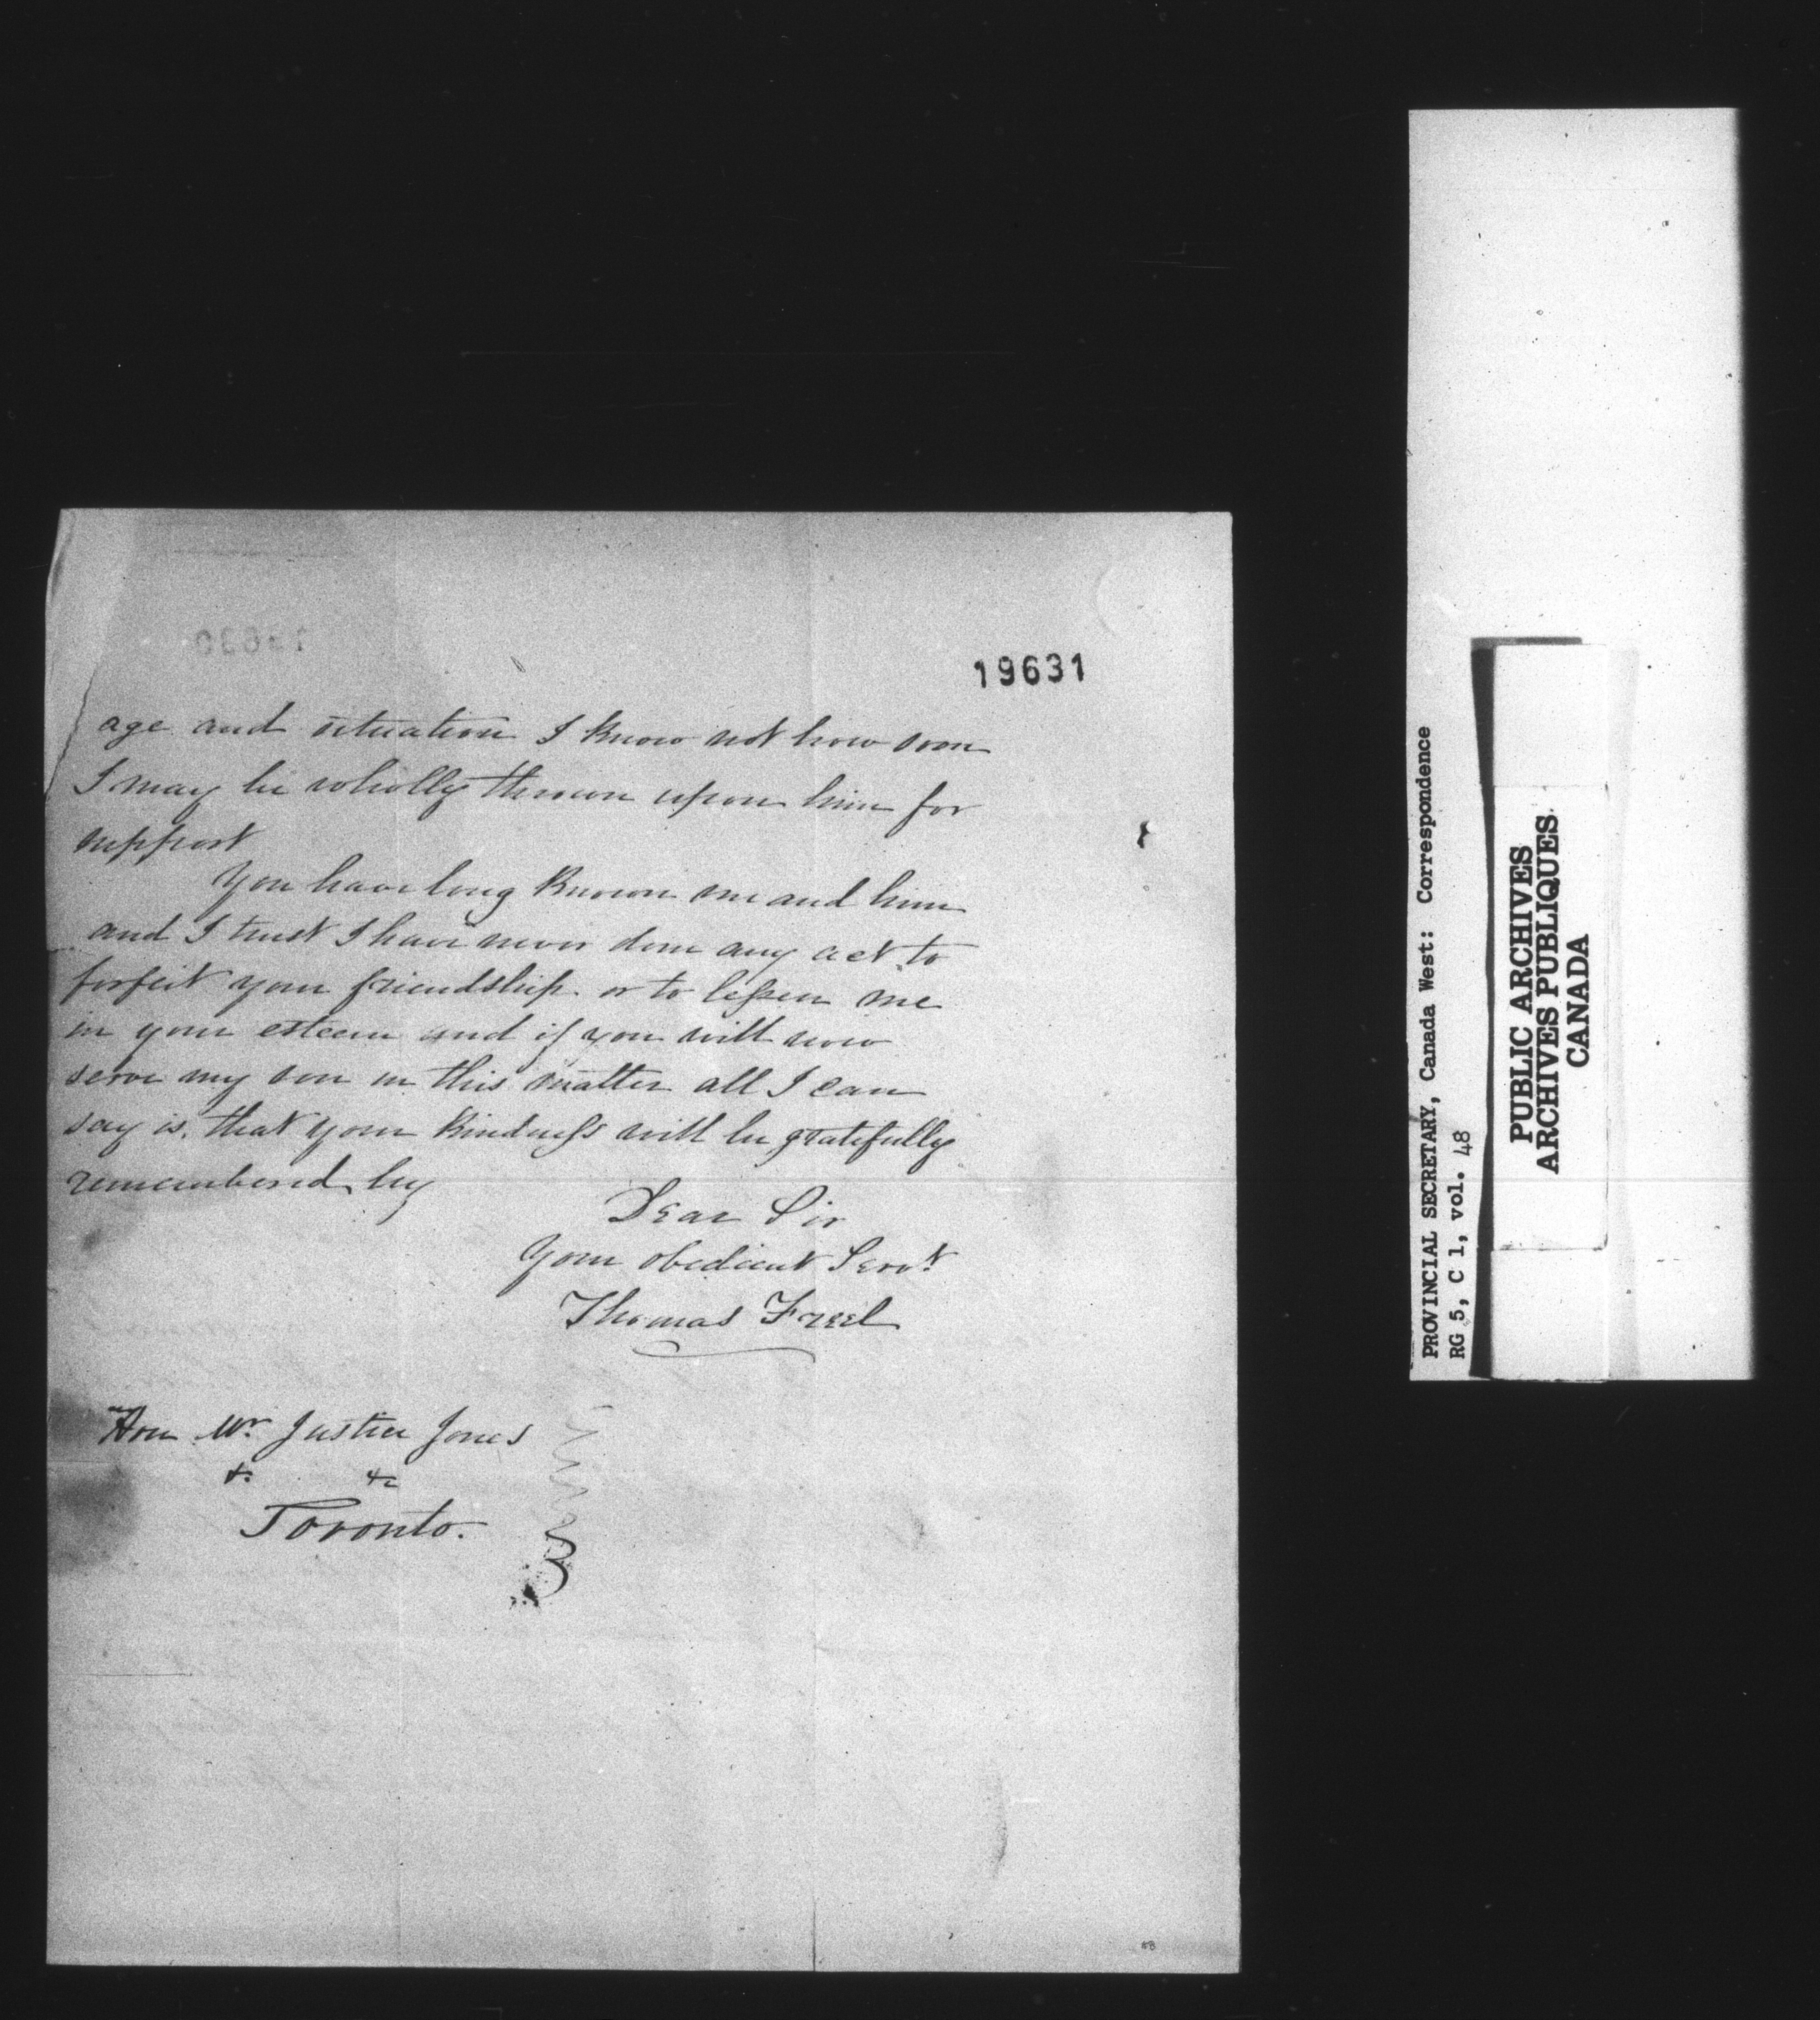 19631
age and situation I know not how soon
I may be wholly thrown upon him for
support
You have long known me and him
and I trust I have never done any act to
forfeit your friendship or to leſsen me
in your esteem and if you will now
serve my son in this matter all I can
say is, that your kindneſs will be gratefully
remembered by
Dear Sir
Your obedient Servt
Thomas Freel
Hon Mr Justice Jones
&c &c
Toronto.
PROVINCIAL SECRETARY, Canada West: Correspondence
RG 5, C 1, vol. 48
PUBLIC ARCHIVES
ARCHIVES PUBLIQUES
CANADA